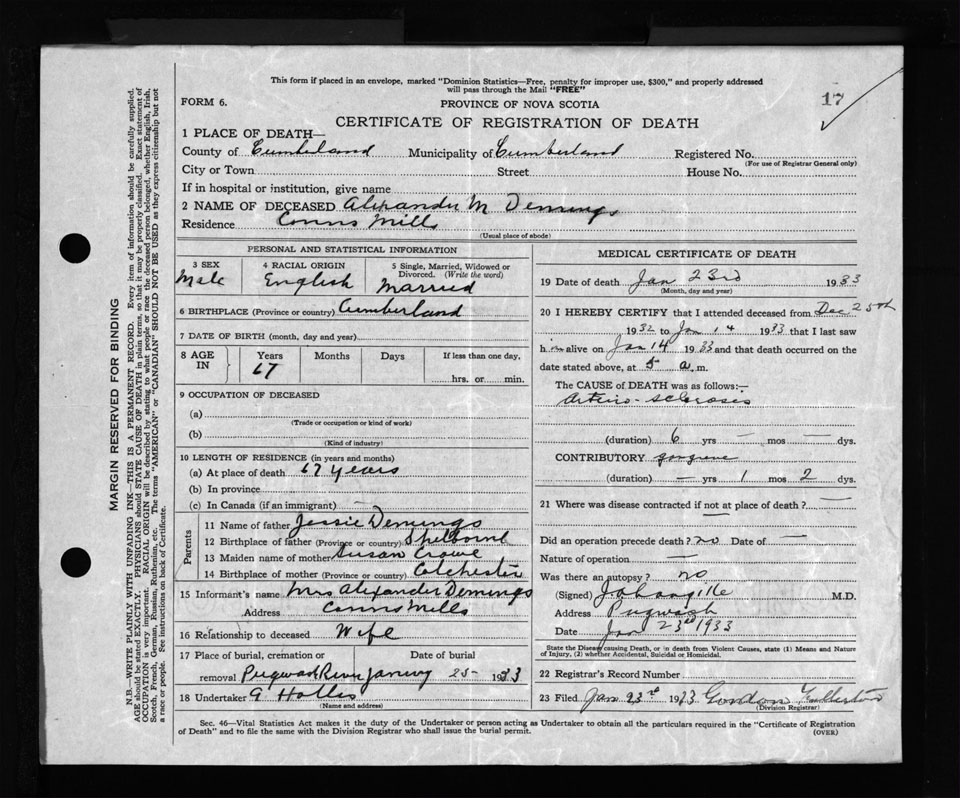 This form if placed in an envelope, marked "Dominion Statistics—Free, penalty for improper use, $300," and properly addressed
will pass through the Mail "FREE"
FORM 6.
PROVINCE OF NOVA SCOTIA
17
CERTIFICATE OF REGISTRATION OF DEATH
1 PLACE OF DEATH—
County of Cumberland Municipality of Cumberland Registered No.
(For use of Registrar General only)
City or Town Street House No.
If in hospital or institution, give name
2 NAME OF DECEASED Alexander M Demings
Residence Conns Mills
(Usual place of abode)
PERSONAL AND STATISTICAL INFORMATION
3 SEX 4 RACIAL ORIGIN 5 Single, Married, Widowed or
Divorced. (Write the word)
Male English Married
6 BIRTHPLACE (Province or country) Cumberland
7 DATE OF BIRTH (month, day and year)
8 AGE IN Years Months Days If less than one day,
67 hrs. or min.
9 OCCUPATION OF DECEASED
(a)
(Trade or occupation or kind of work)
(b)
(Kind of industry)
10 LENGTH OF RESIDENCE (in years and months)
(a) At place of death 67 years
(b) In province
(c) In Canada (if an immigrant) —
Parents
11 Name of father Jessie Demings
12 Birthplace of father (Province or country) Shelborne
13 Maiden name of mother Susan Crowe
14 Birthplace of mother (Province or country) Colchester
15 Informant's name Mrs Alexander Demings
Address Conns Mills
16 Relationship to deceased Wife
17 Place of burial, cremation or Date of burial
removal Pugwash River January 25- 1933
18 Undertaker G Hollis
(Name and address)
MEDICAL CERTIFICATE OF DEATH
19 Date of death Jan 23rd 1933
(Month, day and year)
20 I HEREBY CERTIFY that I attended deceased from Dec 25th
1932 to Jan 14 1933 that I last saw
him alive on Jan 14 1933 and that death occurred on the
date stated above, at 5 a. m.
The CAUSE of DEATH was as follows:—
Arterio-scleroses
(duration) 6 yrs — mos — dys.
CONTRIBUTORY gangrene
(duration) — yrs 1 mos 2 dys.
21 Where was disease contracted if not at place of death? —
—
Did an operation precede death? no Date of —
Nature of operation —
Was there an autopsy? no
(Signed) M.D.
Address Pugwash
Date Jan 23rd 1933
State the Disease causing Death, or in death from Violent Causes, state (1) Means and Nature
of Injury, (2) whether Accidental, Suicidal or Homicidal.
22 Registrar's Record Number
23 Filed Jan 23rd 1933 Gordon
(Division Registrar)
Sec. 46—Vital Statistics Act makes it the duty of the Undertaker or person acting as Undertaker to obtain all the particulars required in the "Certificate of Registration
of Death" and to file the same with the Division Registrar who shall issue the burial permit.
(OVER)
MARGIN RESERVED FOR BINDING
N.B.—WRITE PLAINLY WITH UNFADING INK—THIS IS A PERMANENT RECORD. Every item of information should be carefully supplied.
AGE should be stated EXACTLY. PHYSICIANS should STATE CAUSE OF DEATH in plain terms, so that it may be properly classified. Exact statement of
OCCUPATION is very important. RACIAL ORIGIN will be described by stating to what people or race the deceased person belonged, whether English, Irish,
Scotch, French, German, Russian, Ruthenian, etc. The terms "AMERICAN" or "CANADIAN" SHOULD NOT BE USED as they express citizenship but not
a race or people. See instructions on back of Certificate.